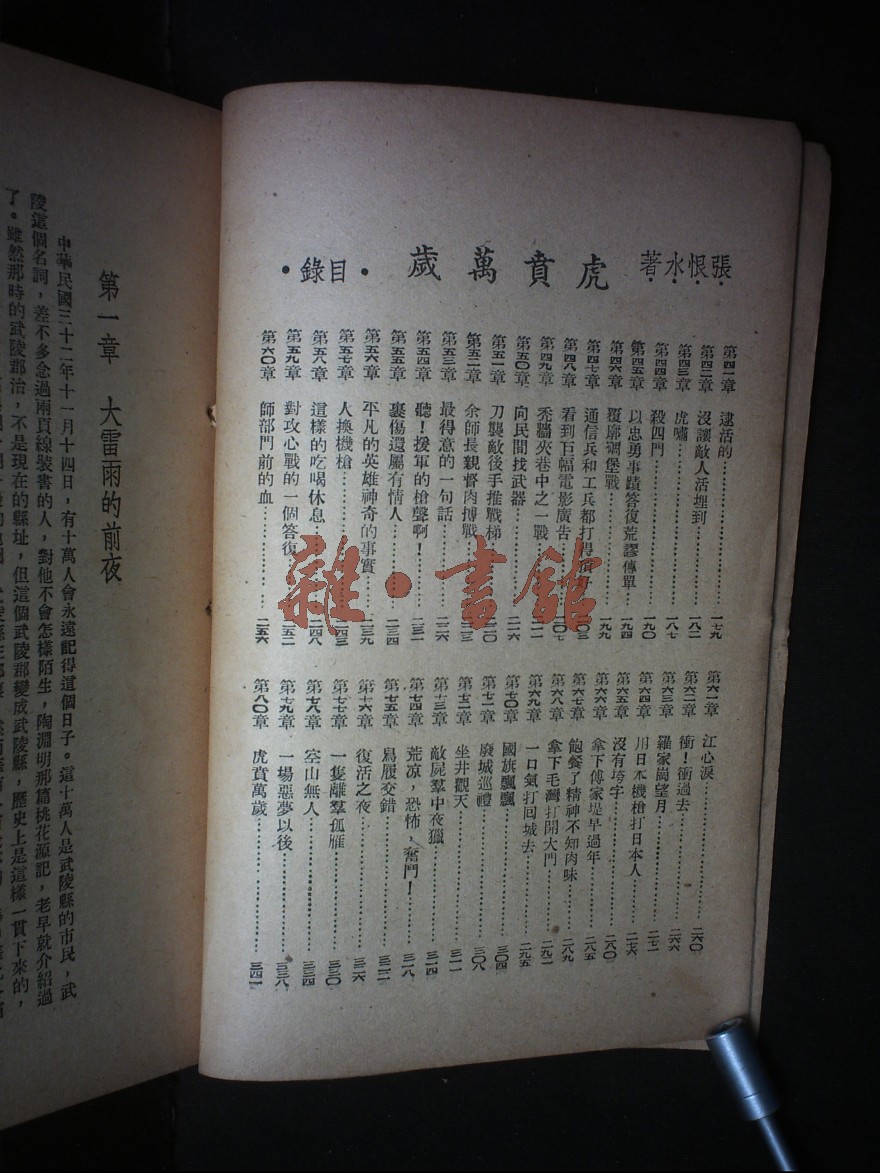 張恨水著
虎賁萬歲
·目錄·
第四一章 逮活的……一七九
第四二章 沒讓敵人活埋到……一八二
第四三章 虎嘯……一八七
第四四章 殺四門……一九〇
第四五章 以忠勇事蹟答復荒謬傳單……一九四
第四六章 覆廓碉堡戰……一九九
第四七章 通信兵和工兵都打得頂好……二〇三
第四八章 看到巨幅電影廣告……二〇七
第四九章 禿牆夾巷中之一戰
第五〇章 向民間找武器……二一六
第五一章 刀襲敵後手推戰梯……二二〇
第五二章 余師長親督肉搏戰
第五三章 最得意的一句話
第五四章 聽!援軍的槍聲啊!……二三一
第五五章 裹傷還屬有情人……二三四
第五六章 平凡的英雄神奇的事實……二三九
第五七章 人換機槍……二四三
第五八章 這樣的吃喝休息……二四八
第五九章 對攻心戰的一個答復……二五二
第六〇章 師部門前的血……二五六
第六一章 江心淚……二六〇
第六二章 衝!衝過去……二六六
第六三章 羅家崗望月……二七一
第六四章 川日本機槍打日本人……二七六
第六五章 沒有垮字……二八〇
第六六章 拿下傅家堤早過年……二八五
第六七章 飽餐了精神不知肉味……二八九
第六八章 拿下毛灣打開大門……二九二
第六九章 一口氣打回城去……二九五
第七〇章 國旗飄飄……三〇四
第七一章 廢城巡禮……三〇八
第七二章 坐井觀天……三一一
第七三章 敵屍羣中夜獵……三一四
第七四章 荒凉,恐怖,奮鬥!……三一八
第七五章 鳥履交錯……三二二
第七六章 復活之夜……三二六
第七七章 一隻離羣孤雁……三三〇
第七八章 空山無人……三三四
第七九章 一場惡夢以後……三三八
第八〇章 虎賁萬歲……三四一
雜·書館
第一章 大雷雨的前夜
中華民國三十二年十一月十四日,有十萬人會永遠記得這個日子。這十萬人是武陵縣的市民,武
陵這個名詞,差不多念過兩頁線裝書的人,對他不會怎樣陌生,陶淵明那篇桃花源記,老早就介紹過
了。雖然那時的武陵郡治,不是現在的縣址,但這個武陵郡變成武陵縣,歷史上是這樣一貫下來的,